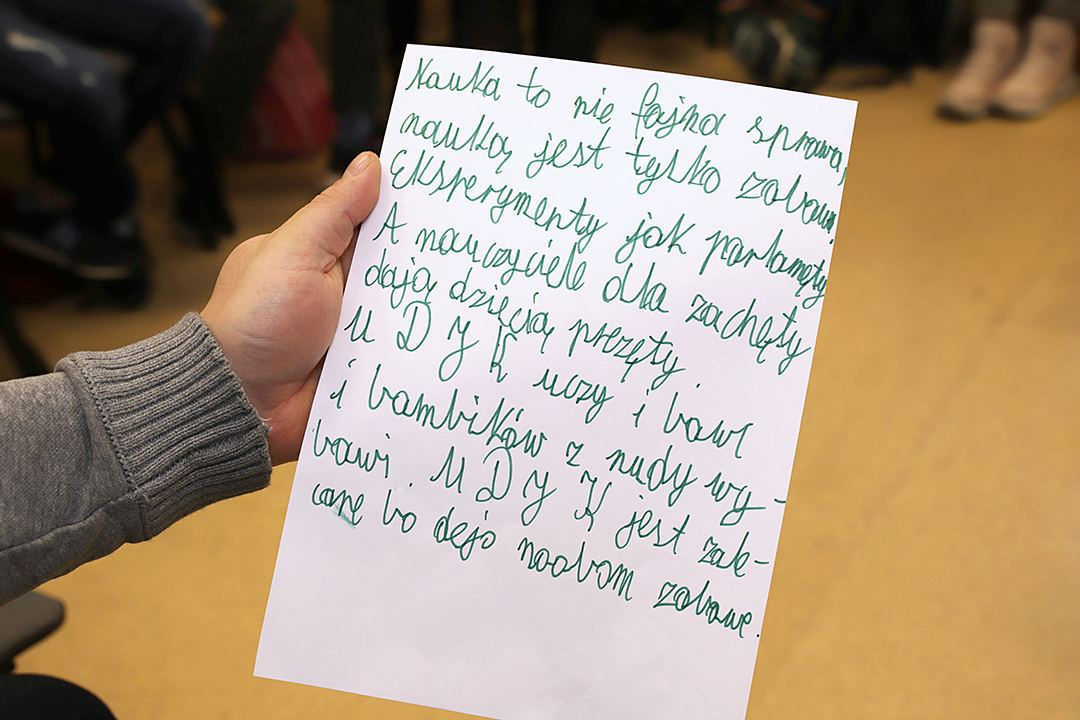 Nauka to nie fajna sprawa,
nauką jest tylko zabawa.
Eksperymenty jak parlamęty
A nauczyciele dla zachęty
dają dziecią prezęty.
U D J K uczy i bawi
i bambików z nudy wy-
bawi. U D J K jest zaje-
care bo dejo noobom zabawe.